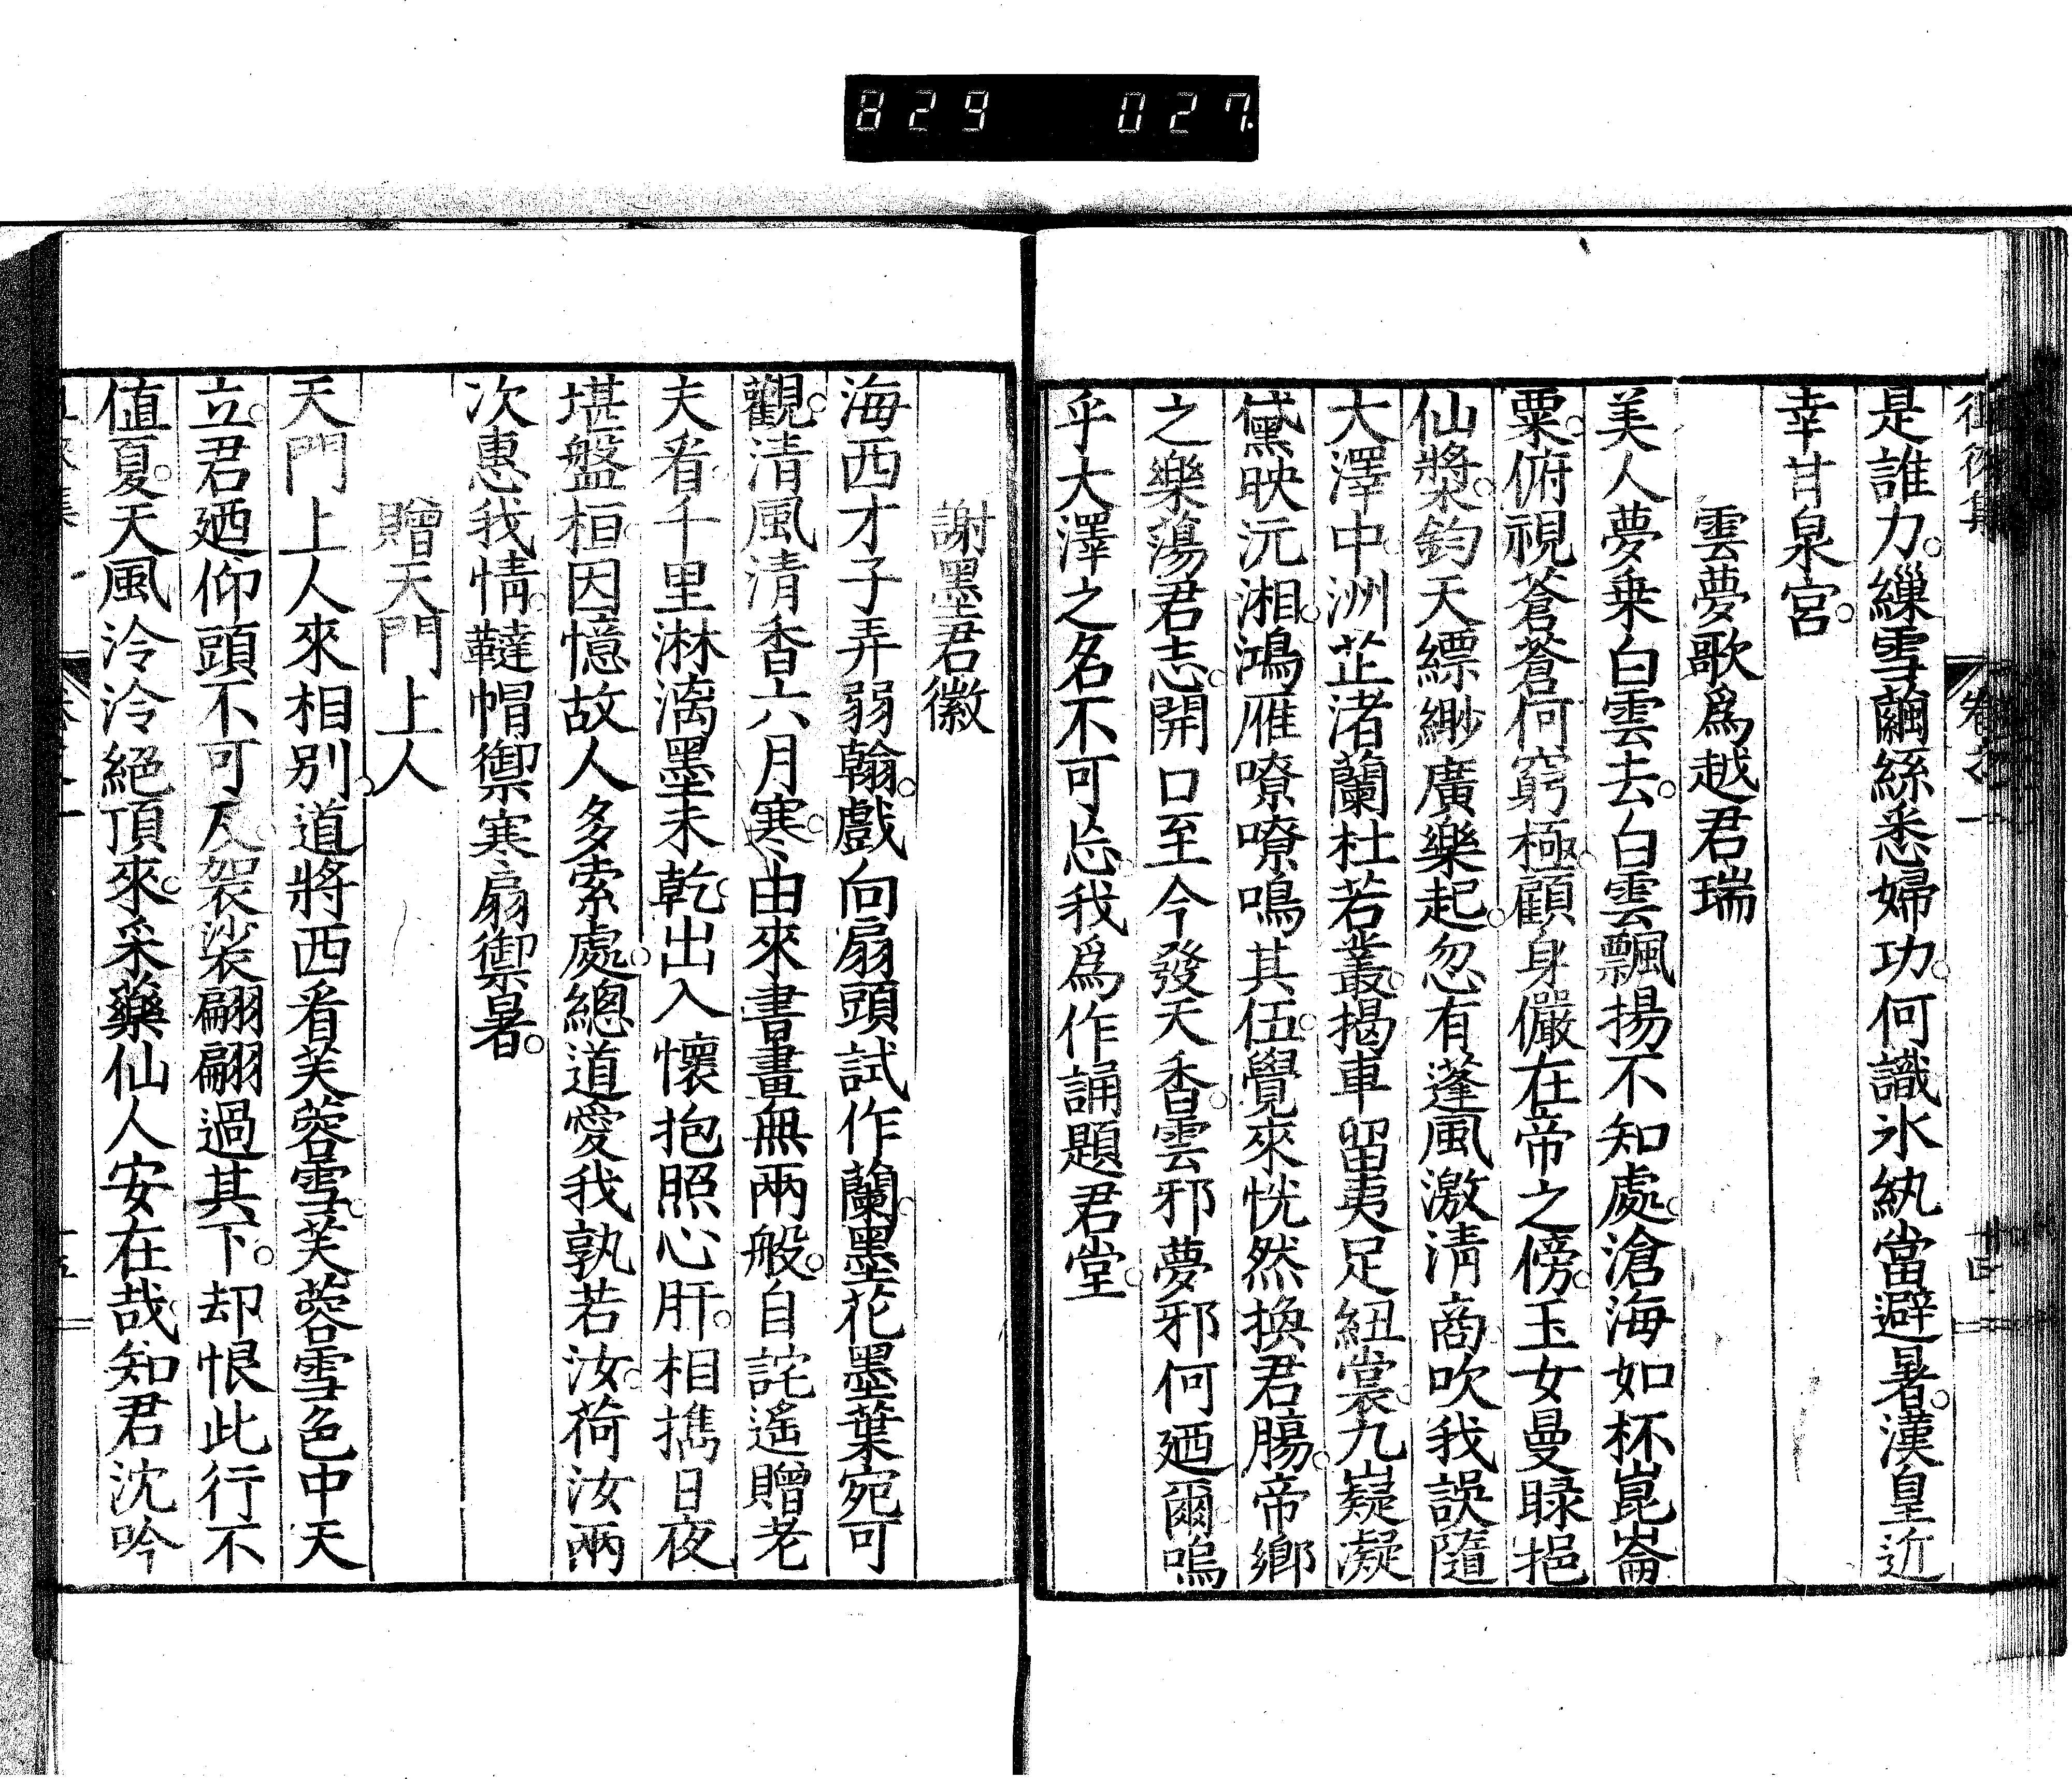 829 027.
是誰力。繅雪繭絲悉婦功。何識氷紈當避暑。漢皇近
幸甘泉宮。
雲夢歌爲越君瑞
美人夢乘白雲去。白雲飄揚不知處。滄海如杯崑崙
粟。俯視蒼蒼何窮極。顧身儼在帝之傍。玉女曼睩挹
仙漿。鈞天縹緲廣樂起。忽有蓬風激淸商。吹我誤隨
大澤中。洲芷渚蘭杜若叢。揭車留夷足紐裳。九嶷凝
黛映沅湘。鴻雁嘹嘹鳴其伍。覺來恍然換君腸。帝鄉
之樂蕩君志。開口至今發天香。雲邪夢邪何廼爾。嗚
乎大澤之名不可忘。我爲作誦題君堂。
謝墨君徽
海西才子弄弱翰。戲向扇頭試作蘭。墨花墨葉宛可
觀。清風清香六月寒。由來書畫無兩般。自詫遙贈老
夫看。千里淋漓墨未乾。出入懷抱照心肝。相擕日夜
堪盤桓。因憶故人多索處。總道愛我孰若汝。荷汝兩
次惠我情。韃帽禦寒扇禦暑。
贈天門上人
天門上人來相別。道將西看芙蓉雪。芙蓉雪色中天
立。君廼仰頭不可及。袈裟翩翩過其下。却恨此行不
値夏。天風泠泠絕頂來。采藥仙人安在哉。知君沈吟